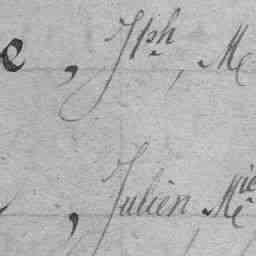 e, Jph, Me
, Julien Mie